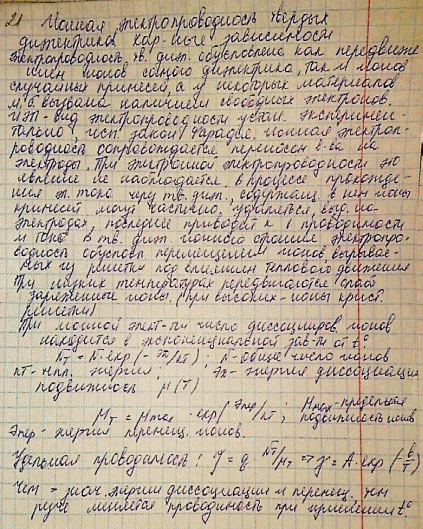 2) Ионная электропроводность твёрдых
диэлектриков. Хар-ные зависимости
Электропроводность тв. диэл. обусловлена как передвиже
нием ионов самого диэлектрика, так и ионов
случайных примесей, а у некоторых материалов
м.б вызвана наличием свободных электронов.
Вид электропроводности устан. эксперимен-
тально, исп. закон Фарадея. Ионная электроп-
роводность сопровождается переносом в-ва на
электроды. При электронной электропроводности это
явление не наблюдается. В процессе прохожде-
ния эл. тока через тв. диэл., содержащ. в нём ионы
примесей могут частично удаляться, выд. на
электродах, последнее приводит к ↓ проводимости
и тока. В тв. диэл. ионного строения электропро-
водность обусловл. перемещением ионов вырывае-
мых из решётки под влиянием теплового движения
При низких температурах передвигаются слабо
закреплённые ионы, (при высоких - ионы крист.
решётки)
При ионной элект-ти число диссоцииров. ионов
находится в экспоненциальной зав-ти от t°
N_T = N · exp (- Эд/kT) ; N - общее число ионов
kT - тепл. энергия ; Эд - энергия диссоциации
подвижность μ(T)
μ_T = μ_max · exp (Эпер/kT) ; μ_max - предельная
подвижность ионов
Эпер - энергия перемещ. ионов.
Удельная проводимость: γ = q N_T μ_T => γ = A · exp (- b/T)
Чем - знач. энергии диссоциации и перемещ. тем
резче меняется проводимость при изменении t°